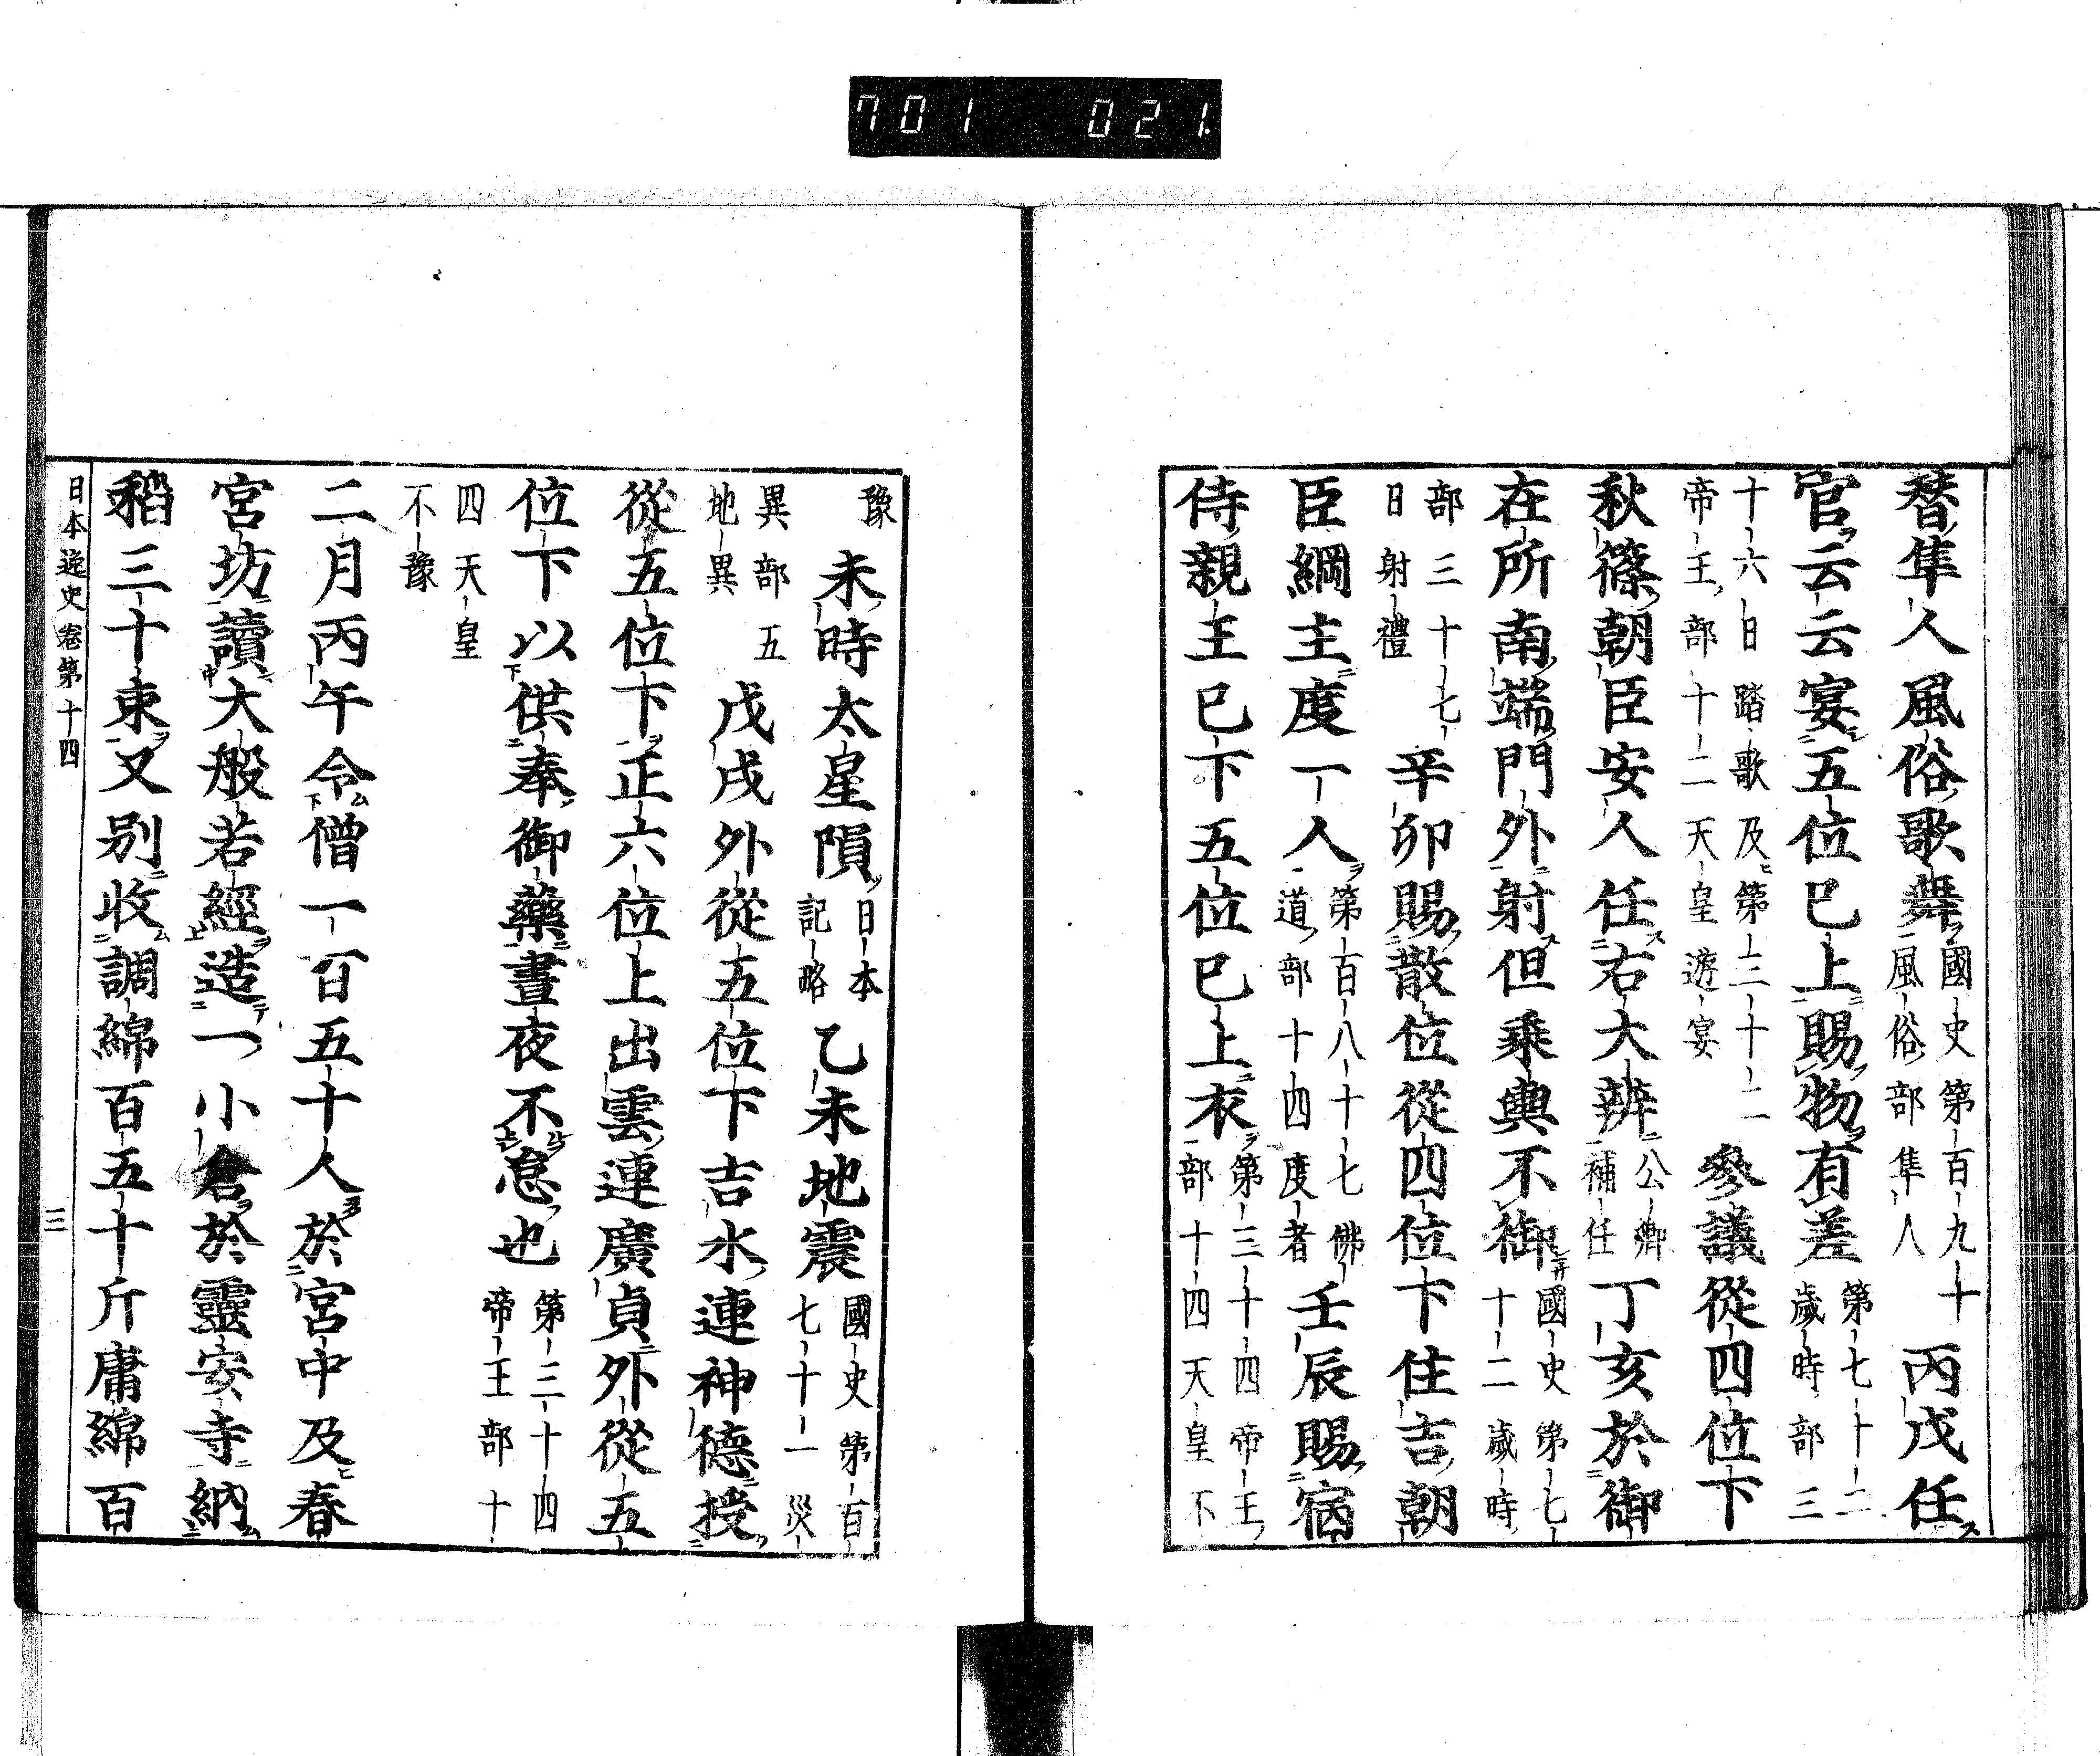 701 021.
替隼人風俗歌舞國史第百九十風俗部隼人丙戌任
官云云宴五位已上賜物有差第七十二歲時部三
十六日踏歌及第三十二帝王部十二天皇遊宴參議從四位下
秋篠朝臣安人任右大辨公卿補任丁亥於御
在所南端門外射但乘輿不御國史第七十二歲時
部三十七日射禮辛卯賜散位從四位下住吉朝
臣綱主度一人第百八十七佛道部十四度者壬辰賜宿
侍親王已下五位已上衣第三十四帝王部十四天皇不
豫未時太星隕日本記略乙未地震國史第百七十一災
異部五地異戊戌外從五位下吉水連神德授
從五位下正六位上出雲連廣貞外從五
位下以供奉御藥晝夜不怠也第三十四帝王部十
四天皇不豫
二月丙午令僧一百五十人於宮中及春
宮坊讀大般若經造一小倉於靈安寺納
稻三十束又別收調綿百五十斤庸綿百
日本逸史卷第十四 三